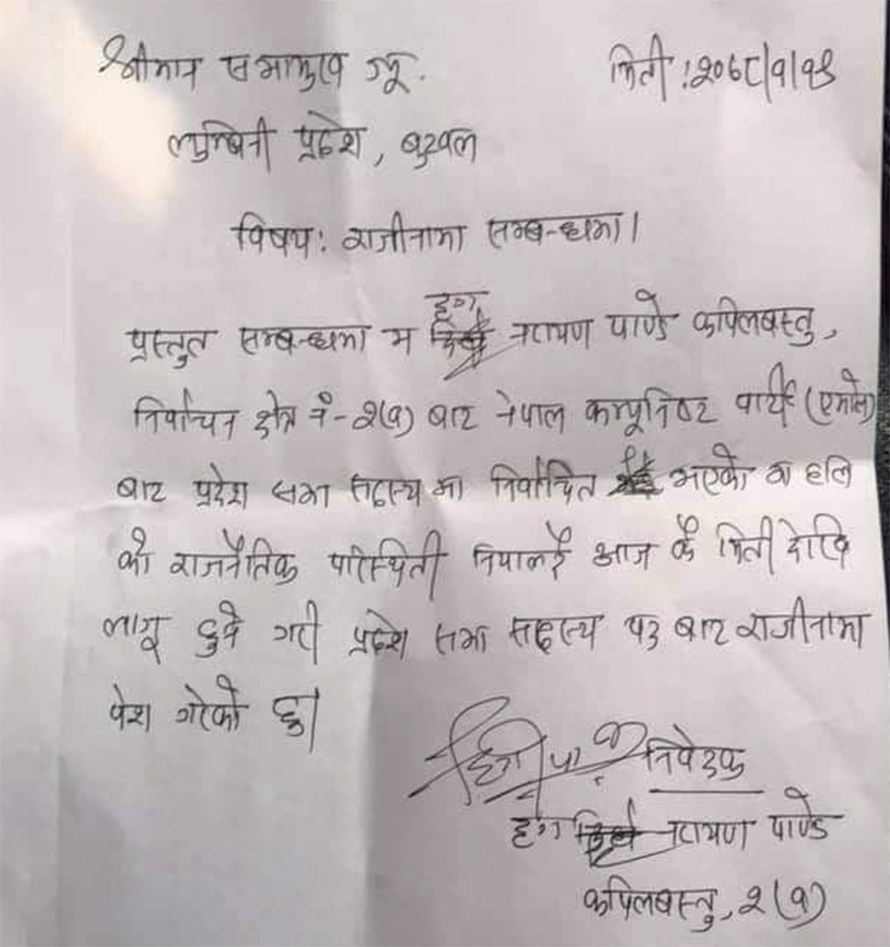 श्रीमान सभामुख ज्यू. मिती :२०७८|१|१९
लुम्बिनी प्रदेश, बुटवल
विषय: राजीनामा सम्बन्धमा।
दृग
प्रस्तुत सम्बन्धमा म नारायण पाण्डे कपिलबस्तु,
निर्वाचन क्षेत्र नं-२(१) बाट नेपाल कम्युनिष्ट पार्टी (एमाले)
बाट प्रदेश सभा सदस्य मा निर्वाचित भएको मा हालि
को राजनैतिक परिस्थिती नियाल्दै आज कै मिती देखि
लागू हुने गरी प्रदेश सभा सदस्य पद बाट राजीनामा
पेश गरेको छु।
निवेदक
दृग नारायण पाण्डे
कपिलबस्तु, २(१)